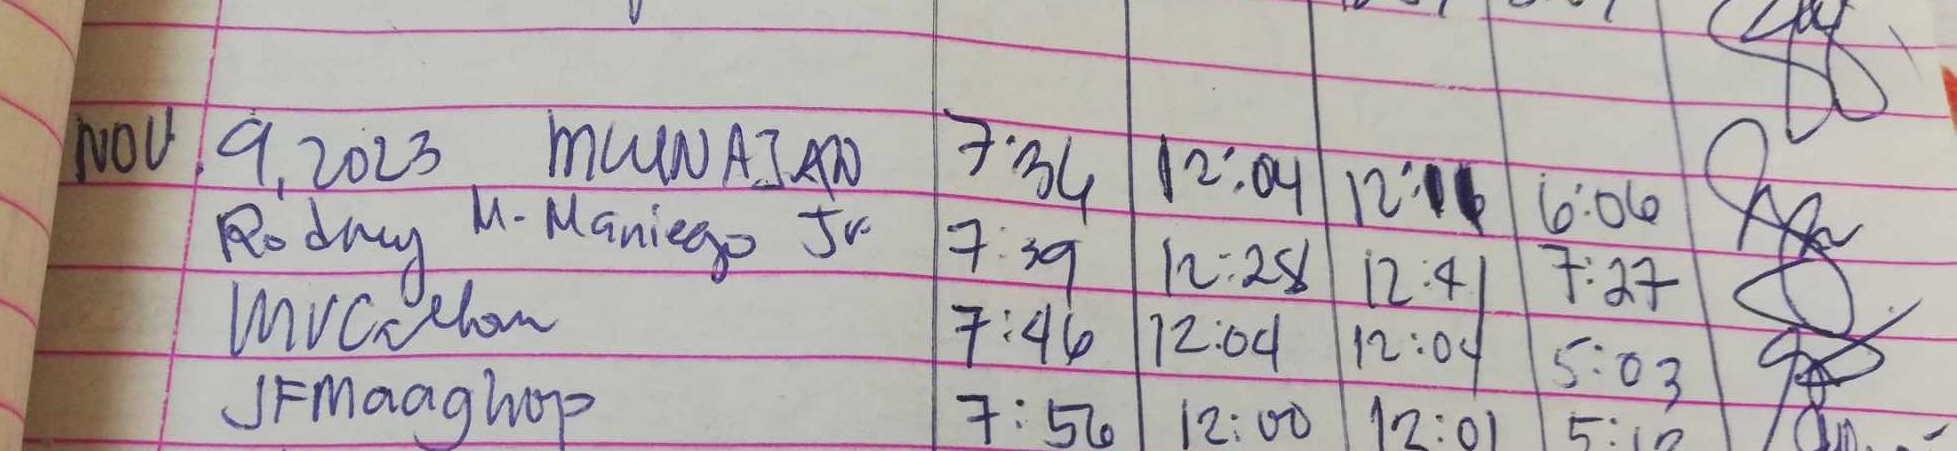 NOV. 9, 2023 7:36 12:04 12:16 6:06
Rodney M. Maniego Jr. 7:39 12:28 12:41 7:27
7:46 12:04 12:04 5:03
JFMaaghop 7:56 12:00 12:01